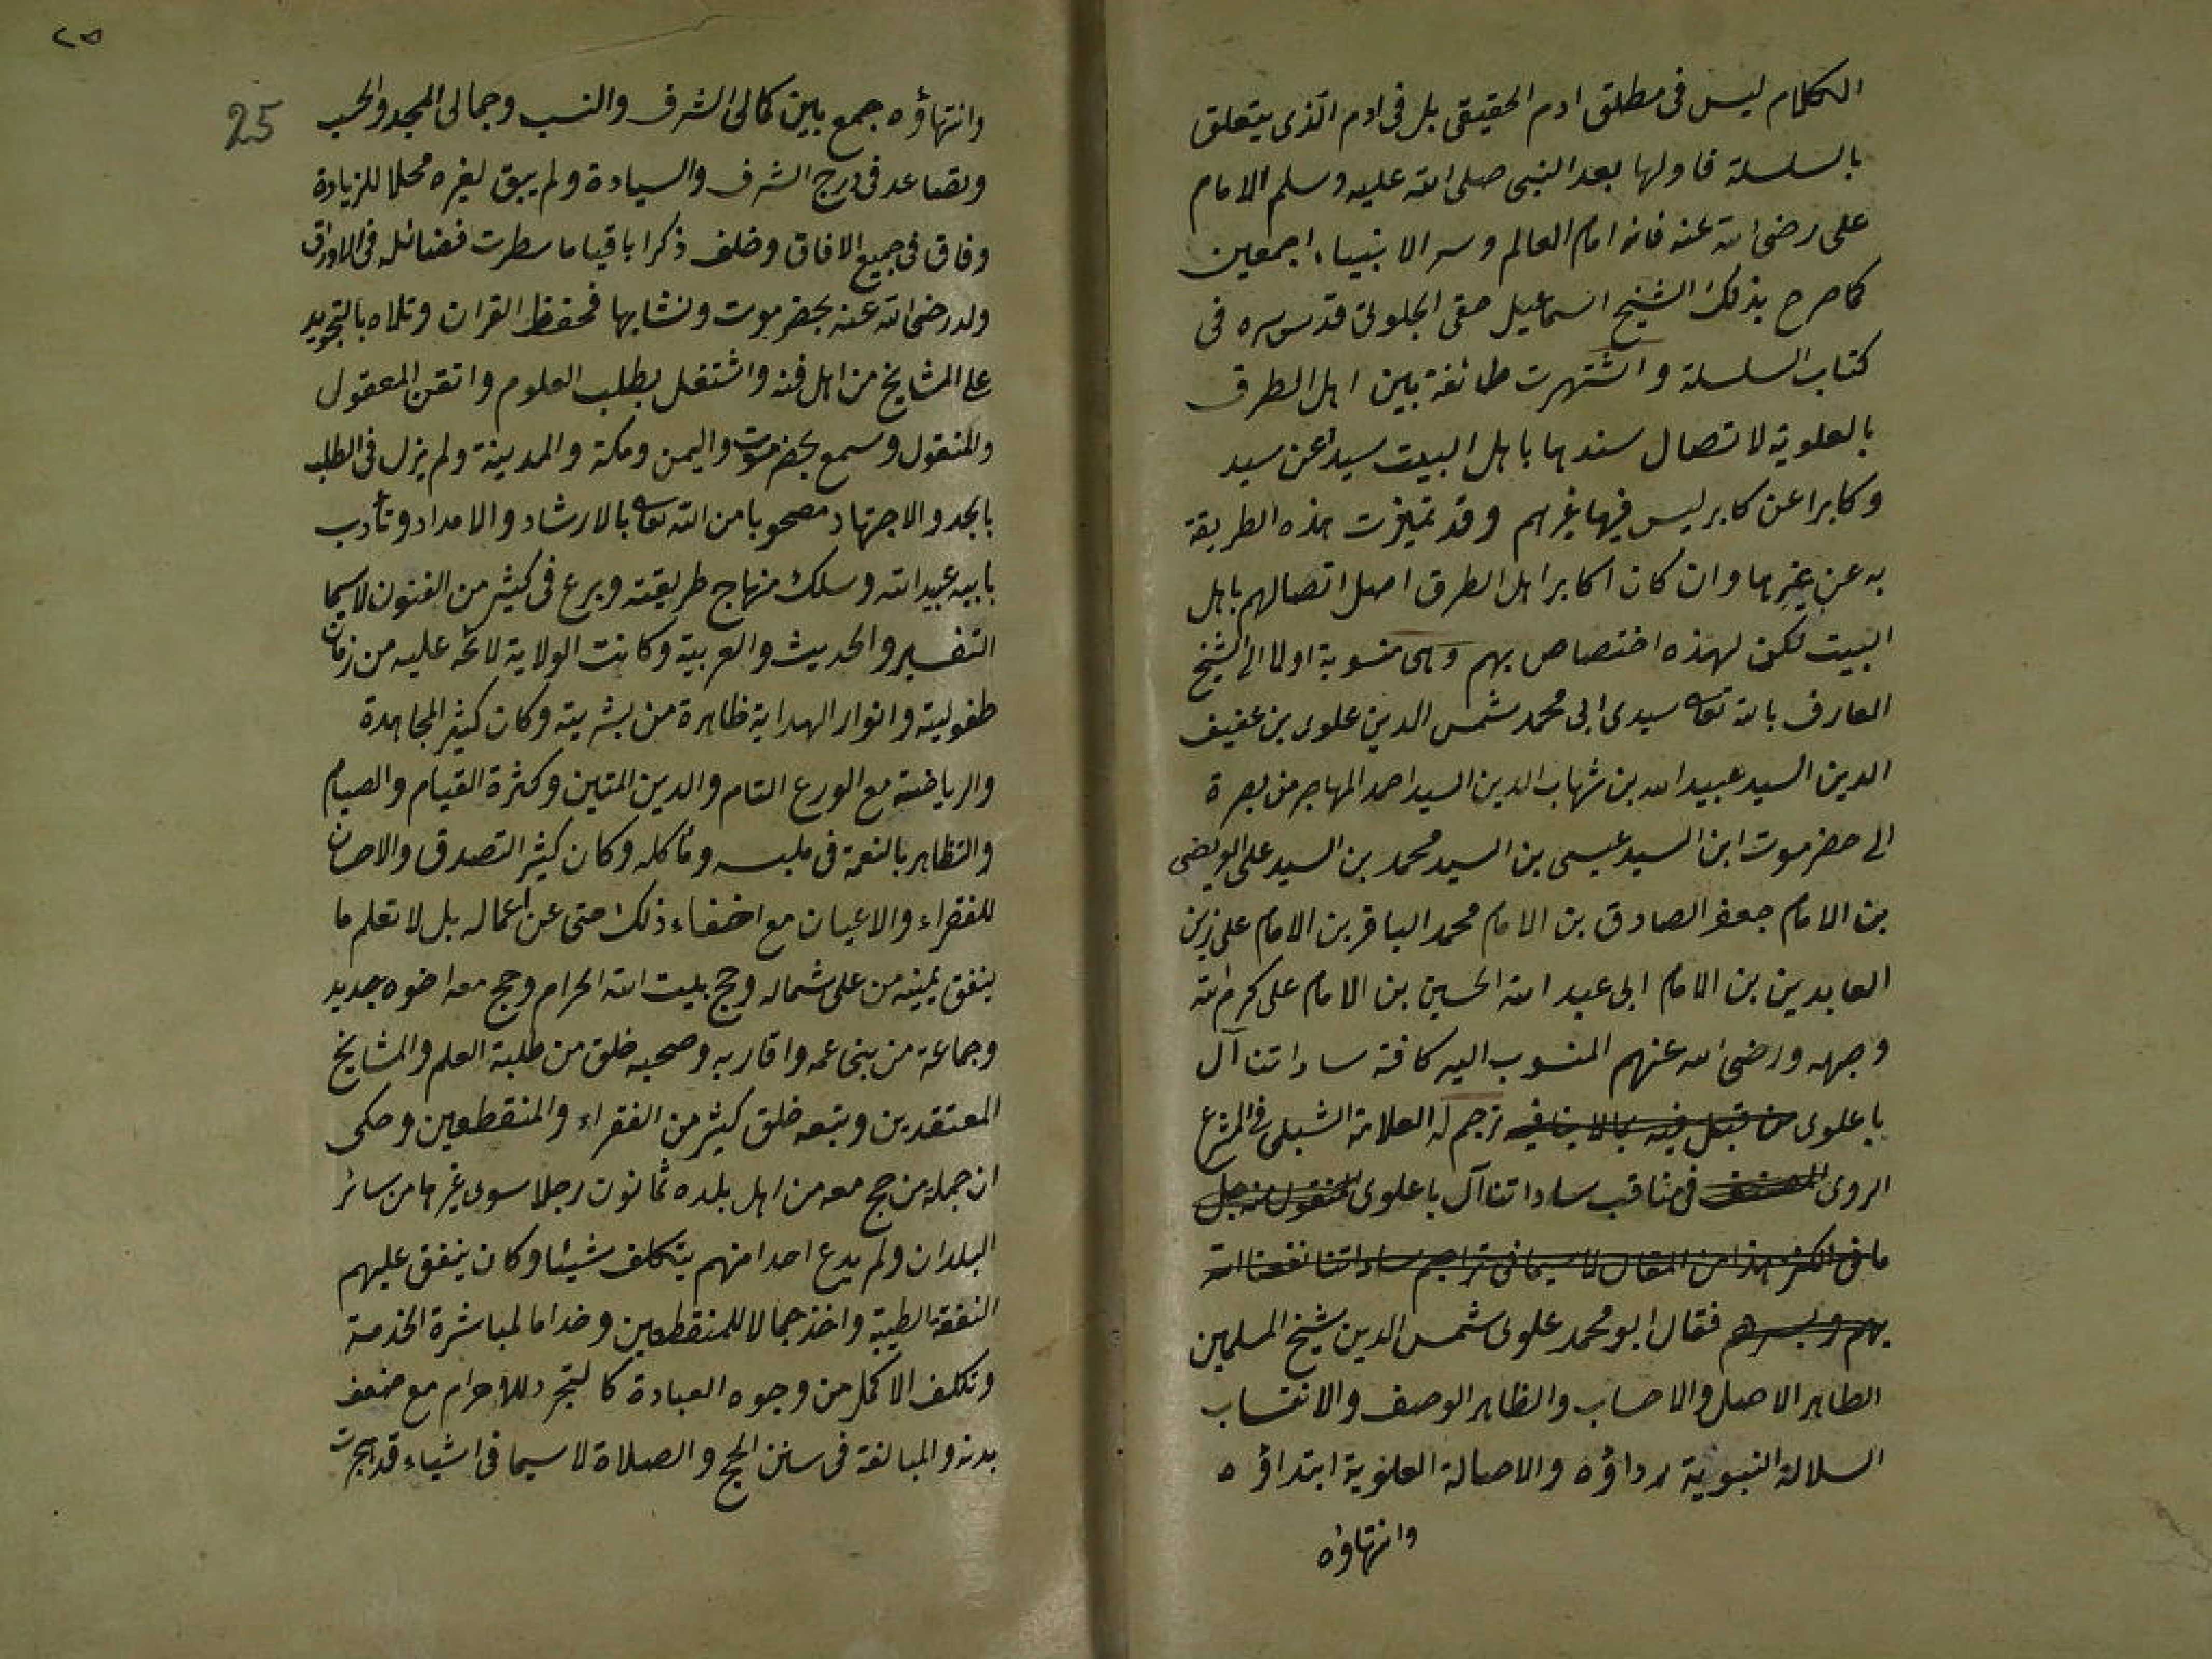 الكلام ليس فى مطلق ادم الحقيقى بل فى ادم الذى يتعلق
بالسلسلة فاولها بعد النبى صلى الله عليه وسلم الامام
على رضى الله عنه فانه امام العالم وسر الانبياء اجمعين
كما صرح بذلك الشيخ اسماعيل حقى الجلوتى قدس سره فى
كتاب السلسلة واشتهرت طائفة بين اهل الطرق
بالعلوية لاتصال سندها باهل البيت سيد عن سيد
وكابرا عن كابر ليس فيها غيرهم وقد تميزت هذه الطريقة
به عن غيرها وان كان اكابر اهل الطرق اصل اتصالهم باهل
البيت لكن لهذه اختصاص بهم وهى منسوبة اولا الى الشيخ
العارف بالله تعالى سيدى ابى محمد شمس الدين علوى بن عفيف
الدين السيد عبيد الله بن شهاب الدين السيد احمد المهاجر من بصرة
الى حضرموت ابن السيد عيسى بن السيد محمد بن السيد على العريضى
بن الامام جعفر الصادق بن الامام محمد الباقر بن الامام على زين
العابدين بن الامام ابى عبد الله الحسين بن الامام على كرم الله
وجهه ورضى الله عنهم المنسوب اليه كافة ساداتنا آل
باعلوى ترجم له العلامة الشبلى فى المشرع
الروى فى مناقب ساداتنا آل باعلوى
ما فى هذا من المقال لا سيما فى تراجم ساداتنا نفعنا الله
بهم وبسرهم فقال ابو محمد علوى شمس الدين شيخ المسلمين
الطاهر الاصل والاحساب والظاهر الوصف والانتساب
السلالة النبوية رداؤه والاصالة العلوية ابتداؤه
وانتهاؤه
٢٥
25
وانتهاؤه جمع بين كمالى الشرف والنسب وجمالى المجد والحسب
وتصاعد فى درج الشرف والسيادة ولم يبق لغيره محلا للزيادة
وفاق فى جميع الافاق وخلف ذكرا باقيا ما سطرت فضائله فى الاوراق
ولد رضى الله عنه بحضرموت ونشا بها فحفظ القران وتلاه بالتجويد
على المشايخ من اهل فنه واشتغل بطلب العلوم واتقن المعقول
والمنقول وسمع بحضرموت واليمن ومكة والمدينة ولم يزل فى الطلب
بالجد والاجتهاد مصحوبا من الله تعالى بالارشاد والامداد وتأدب
بابيه عبيد الله وسلك منهاج طريقته وبرع فى كثير من الفنون لاسيما
التفسير والحديث والعربية وكانت الولاية لائحه عليه من زمان
طفوليته وانوار الهداية ظاهرة من بشريته وكان كثير المجاهدة
والرياضة مع الورع التام والدين المتين وكثرة القيام والصيام
والتظاهر بالنعمة فى ملبسه ومأكله وكان كثير التصدق والاحسان
للفقراء والاعيان مع اخفاء ذلك حتى عن اعماله بل لا تعلم ما
ينفق يمينه من على شماله وحج بيت الله الحرام وحج معه اخوه جديد
وجماعة من بنى عمه واقاربه وصحبه خلق من طلبة العلم والمشايخ
المعتقدين وتبعه خلق كثير من الفقراء والمنقطعين وحكى
ان جملة من حج معه من اهل بلده ثمانون رجلا سوى غيرها من سائر
البلدان ولم يدع احدا منهم يتكلف شيئا وكان ينفق عليهم
النفقة الطيبة واخذ جمالا للمنقطعين وخداما لمباشرة الخدمة
وتكلف الاكمل من وجوه العبادة كالتجرد للاحرام مع ضعف
بدنه والمبالغة فى سنن الحج والصلاة لا سيما فى اشياء قد هجرت